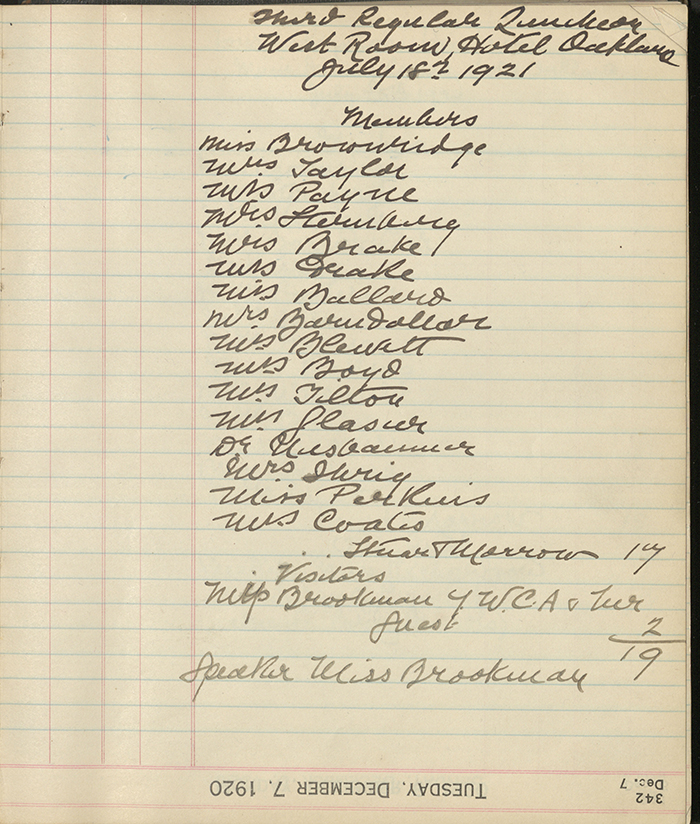 Third Regular Luncheon
West Room, Hotel Oakland
July 18th 1921
Members
Miss Brownridge
Mrs Taylor
Mrs Payne
Mrs Sternberg
Mrs Brake
Mrs Drake
Miss Ballard
Mrs Barndollar
Mrs Blewett
Mrs Boyd
Mrs Tilton
Mrs Glasier
Dr Nusbaumer
Mrs Ihrig
Miss Perkins
Mrs Coates
" " Stuart Morrow 17
Visitors
Miss Brookman Y.W.C.A & her
guest 2
19
Speaker Miss Brookman
TUESDAY, DECEMBER 7, 1920
342
Dec. 7